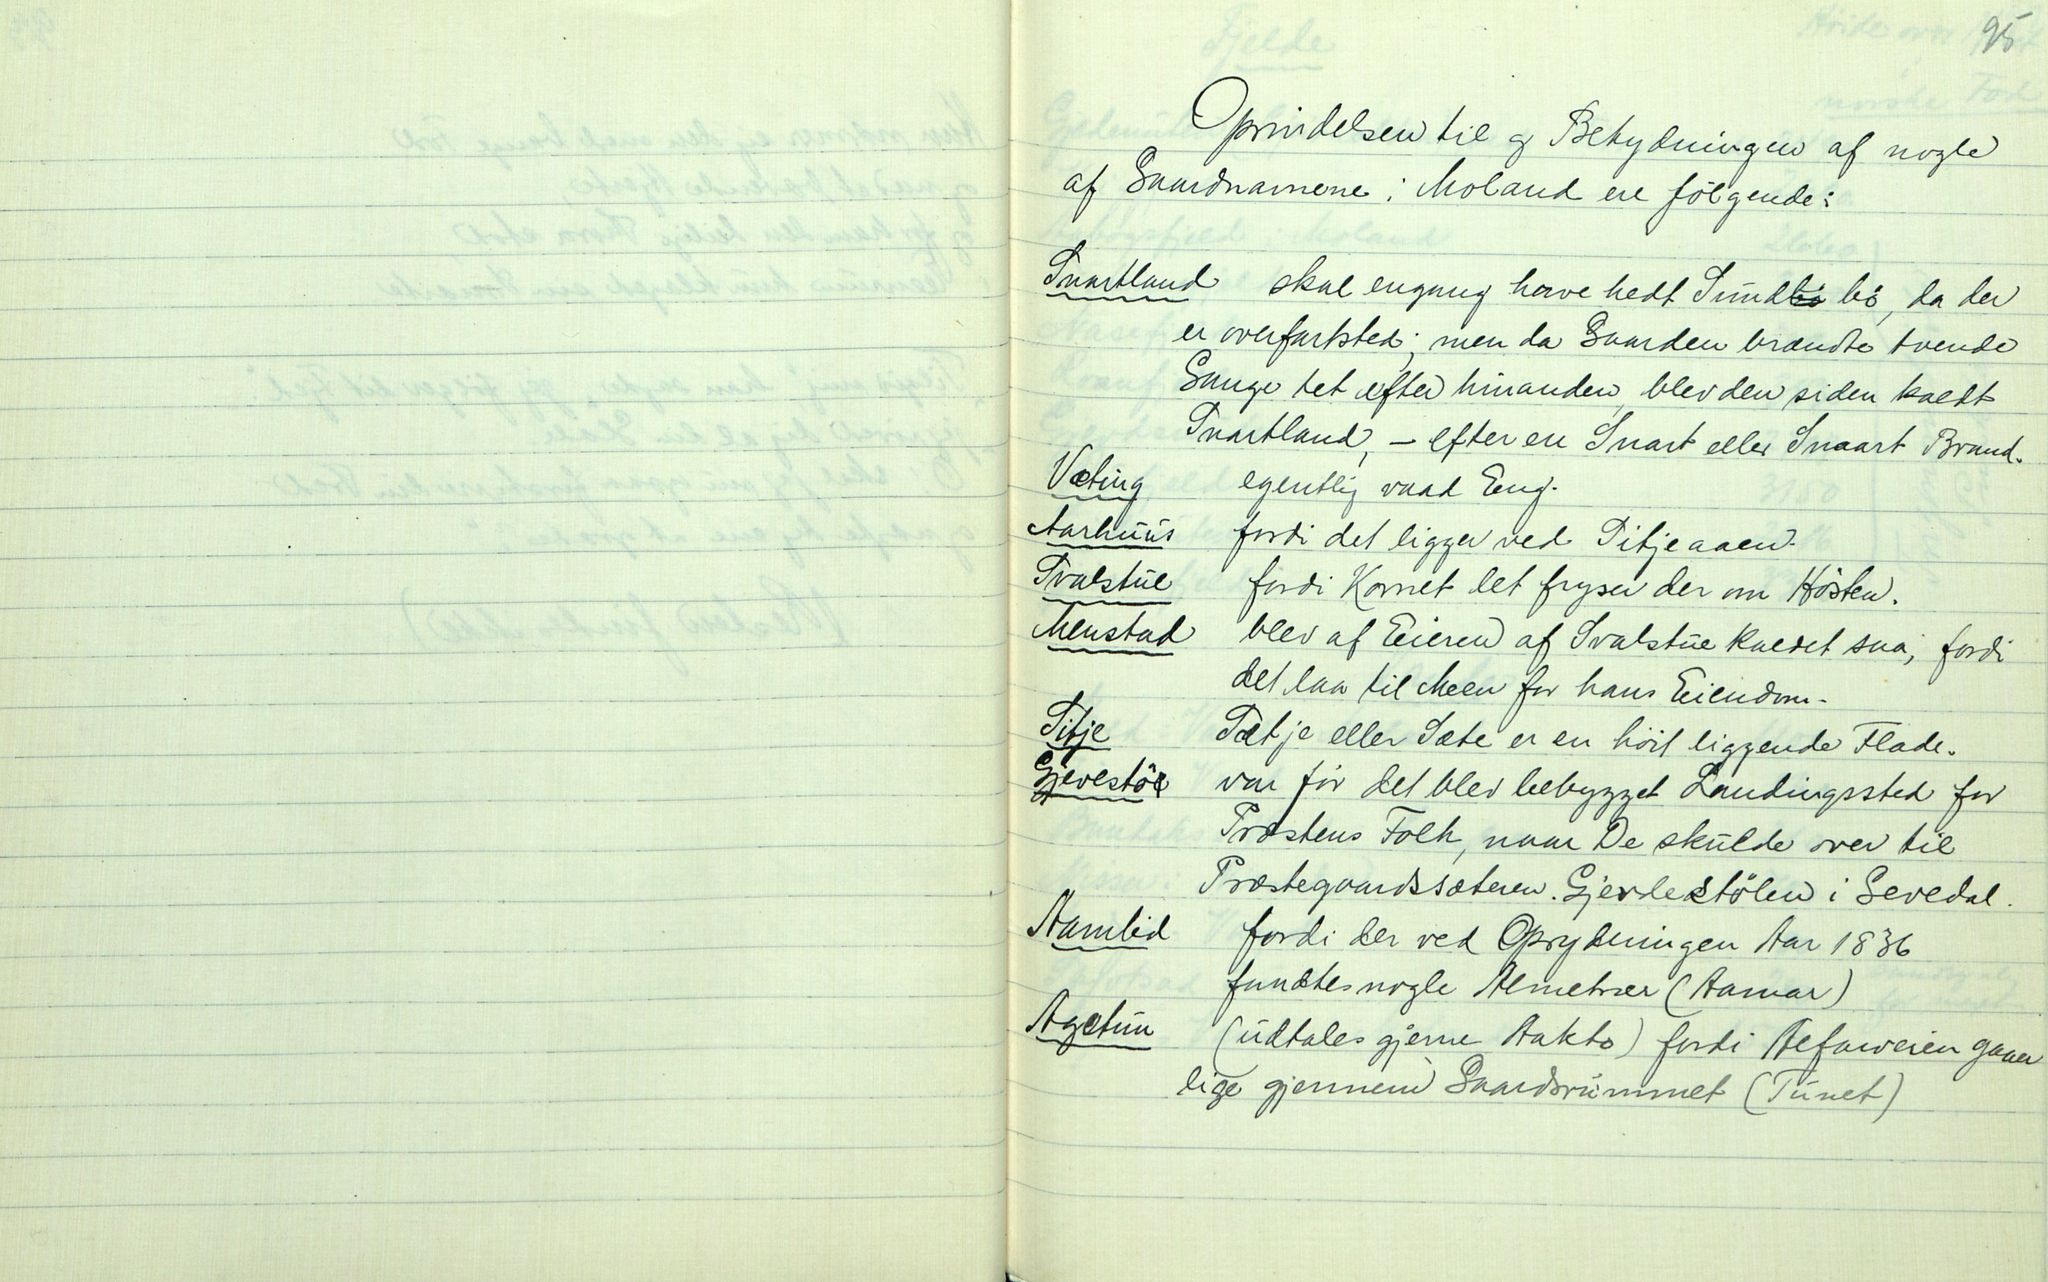 95
Oprindelsen til og Betydningen af nogle
af Gaardnavnene i Moland ere fölgende:
Snartland skal engang have hedt Sundbö bö, da der
er overfartsted; men da Gaarden brændte tvende
Gange tet efter hinanden, blev den siden kaldt
Snartland, – efter en Snart eller Snaart Brand.
Væting egentlig vaad Eng.
Aarhuus fordi det ligger ved Sitjeaaen.
Svalstue fordi Kornet let fryser der om Hösten.
Menstad blev af Eieren af Svalstue kaldet saa, fordi
det laa til Meen for hans Eiendom.
Sitje Sætje eller Sæte er en höit liggende Flade.
Gjevestöl var för det blev bebygget Landingssted for
Præstens Folk, naar De skulde over til
Præstegaardssæteren. Gjevlestölen i Gevedal.
Aamlid fordi der ved Oprydningen Aar 1836
fundtes nogle Almetræer (Aamar)
Agetun (udtales gjerne Aakto) fordi Alfarveien gaaer
lige gjennem Gaardsrummet (Tunet)